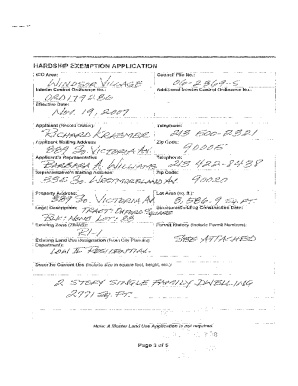 HARDSHIP EXEMPTION APPLICATION
ICO Area: Council File No.:
WINDSOR VILLAGE
Interim Control Ordinance No.: Additional Interim Control Ordinance No.:
Effective Date:
Nov. 19, 2007
Applicant (Record Owner): Telephone:
RICHARD 213 500-2321
Applicant Mailing Address: Zip Code:
889 So. VICTORIA AV. 90005
Applicant's Representative Telephone:
BARBARA A. WILLIAMS 213 422-8438
Representative's Mailing Address Zip Code:
So. WESTMORELAND AV. 90020
Property Address: Lot Area (sq. ft.):
889 So. VICTORIA AV. 8,586.9 SQ. FT.
Legal Description:
TRACT: OXFORD SQUARE
BLK: NONE LOT:
Existing Zone (ZIMAS): Permit History (include Permit Numbers):
R1-1 SEE ATTACHED
Existing Land Use Designation (from City Planning
Department):
LOW II RESIDENTIAL
Describe Current Use (include size in square feet, height, etc.):
2 STORY SINGLE FAMILY DWELLING
2771 SQ. FT.
Note: A Master Land Use Application is not required
Page 3 of 5